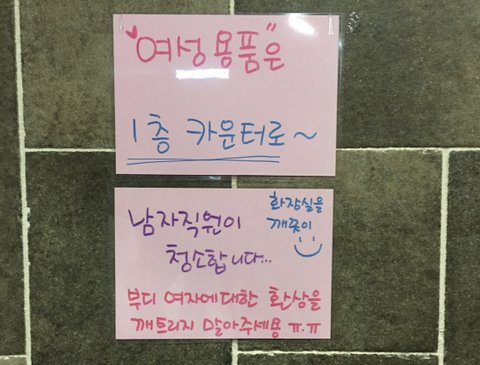 "여성용품"은
1층 카운터로~
화장실을
깨끗이
남자직원이
청소합니다...
부디 여자에대한 환상을
깨트리지 말아주세용 ㅠ.ㅠ